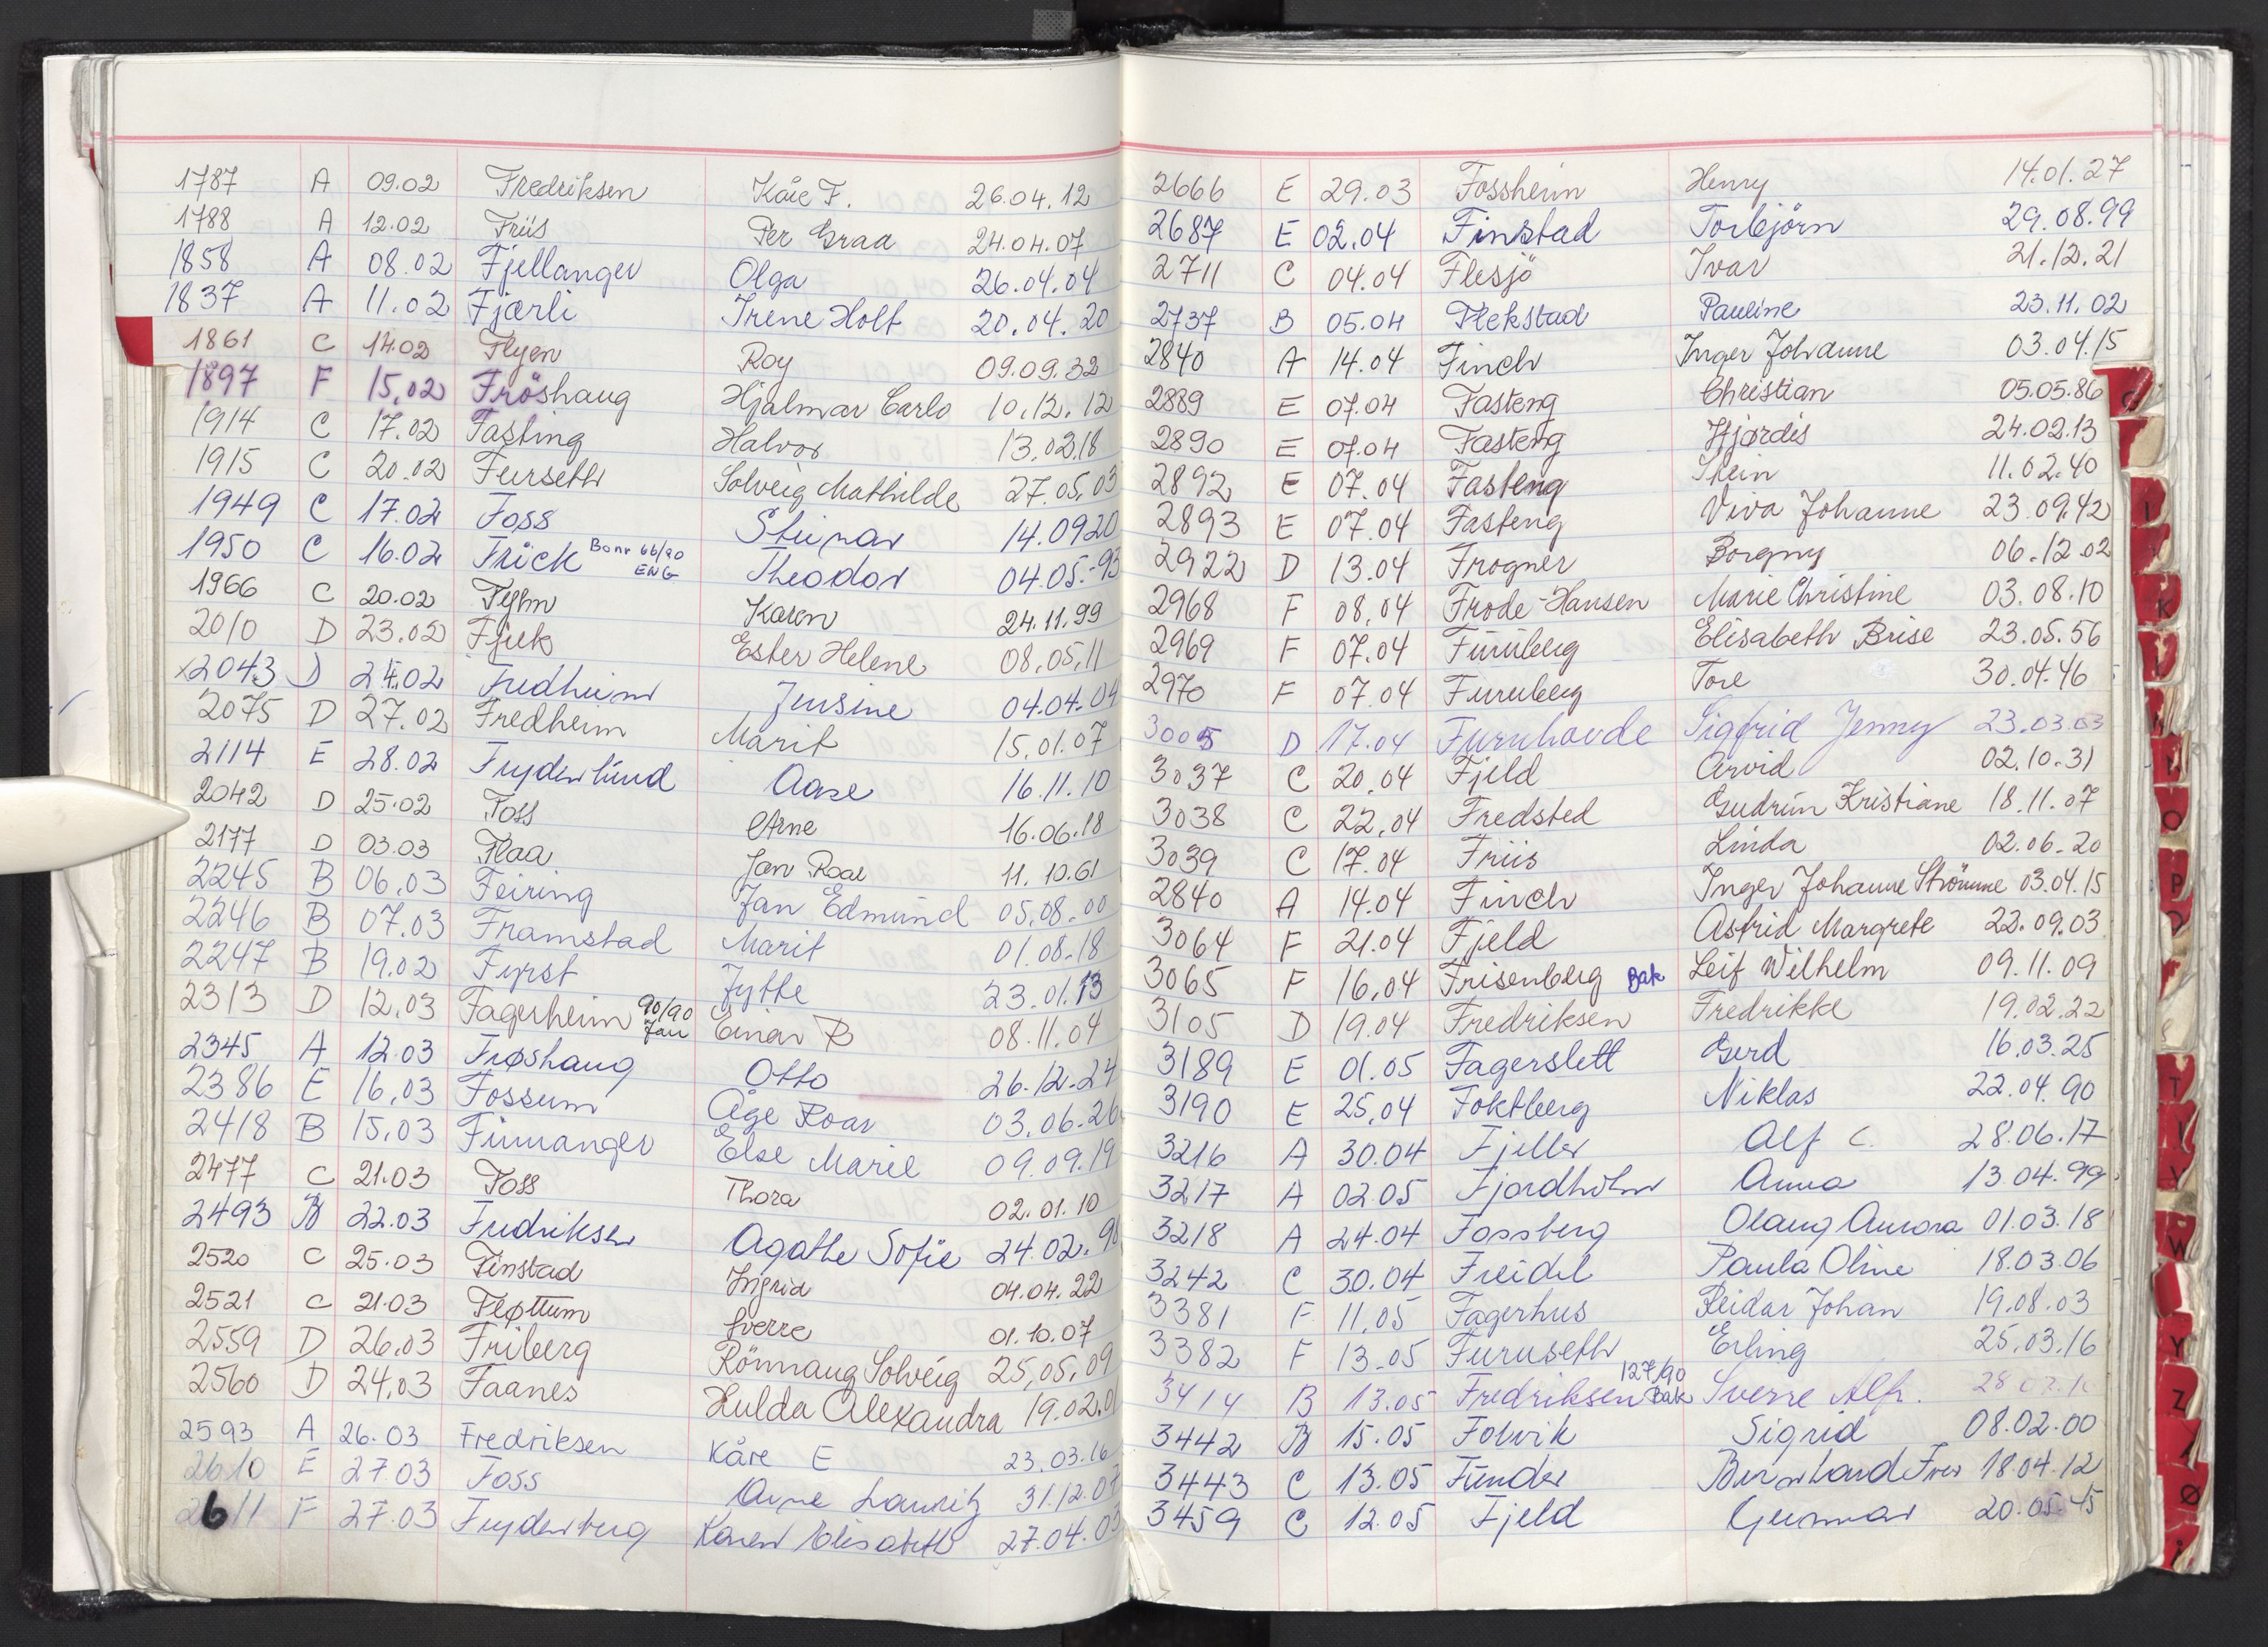 1787 A 09.02 Fredriksen Kåre F. 26.04.12
1788 A 12.02 Friis Per Graa 24.04.07
1858 A 08.02 Fjellanger Olga 26.04.04
1837 A 11.02 Fjærli Irene Holt 20.04.20
1861 C 14.02 Flyen Roy 09.09.32
1897 F 15.02 Fröshaug Hjalmar Carlo 10.12.12
1914 C 17.02 Fasting Halvor 13.02.18
1915 C 20.02 Furseth Solveig Mathilde 27.05.03
1949 C 17.02 Foss Steinar 14.09.20
1950 C 16.02 Frick Bonr 66/90 ENG Theodor 04.05.-93
1966 C 20.02 Karen 24.11.99
2010 D 23.02 Fjuk Ester Helene 08.05.11
x2043 D 24.02 Fredheim Jensine 04.04.04
2075 D 27.02 Fredheim Marit 15.01.07
2114 E 28.02 Frydenlund Aase 16.11.10
2042 D 25.02 Foss Arne 16.06.18
2177 D 03.03 Flaa Jan Roar 11.10.61
2245 B 06.03 Feiring Jan Edmund 05.08.00
2246 B 07.03 Framstad Marit 01.08.18
2247 B 19.02 Fyrst Jytte 23.01.13
2313 D 12.03 Fagerheim 90/90 Jan Einar R 08.11.04
2345 A 12.03 Frøshaug Otto 26.12.24
2386 E 16.03 Fossum Åge Roar 03.06.26
2418 B 15.03 Finnanger Else Marie 09.09.19
2477 C 21.03 Foss Thora 02.01.10
2493 B 22.03 Fredriksen Agathe Sofie 24.02.98
2520 C 25.03 Finstad Ingrid 04.04.22
2521 C 21.03 Fløttum Sverre 01.10.07
2559 D 26.03 Friberg Rönnaug Solveig 25.05.09
2560 D 24.03 Faanes Hulda Alexandra 19.02.01
2593 A 26.03 Fredriksen Kåre E 23.03.16
2610 E 27.03 Foss Arne Lauritz 31.12.07
2611 F 27.03 Frydenberg Karen Elisabeth 27.04.03
2666 E 29.03 Fossheim Henry 14.01.27
2687 E 02.04 Finstad Torbjörn 29.08.99
2711 C 04.04 Flesjö Ivar 21.12.21
2737 B 05.04 Flekstad Pauline 23.11.02
2840 A 14.04 Finch Inger Johanne 03.04.15
2889 E 07.04 Fasteng Christian 05.05.86
2890 E 07.04 Fasteng Hjørdis 24.02.13
2892 E 07.04 Fasteng Stein 11.02.40
2893 E 07.04 Fasteng Viva Johanne 23.09.42
2922 D 13.04 Frogner Borgny 06.12.02
2968 F 08.04 Frode-Hansen Marie Christine 03.08.10
2969 F 07.04 Furuberg Elisabeth Brise 23.05.56
2970 F 07.04 Furuberg Tore 30.04.46
3005 D 17.04 Furuhovde Sigfrid Jenny 23.03.03
3037 C 20.04 Fjeld Arvid 02.10.31
3038 C 22.04 Fredsted Gudrun Kristiane 18.11.07
3039 C 17.04 Friis Linda 02.06.20
2840 A 14.04 Finch Inger Johanne Strömme 03.04.15
3064 F 21.04 Fjeld Astrid Margrete 22.09.03
3065 F 16.04 Frisenberg Bak Leif Wilhelm 09.11.09
3105 D 19.04 Fredriksen Fredrikke 19.02.22
3189 E 01.05 Fagerslett Gerd 16.03.25
3190 E 25.04 Foktberg Niklas 22.04.90
3216 A 30.04 Fjeller Alf C. 28.06.17
3217 A 02.05 Fjordholm Anna 13.04.99
3218 A 24.04 Fossberg Olaug Aurora 01.03.18
3242 C 30.04 Freidel Paula Oline 18.03.06
3381 F 11.05 Fagerhus Reidar Johan 19.08.03
3382 F 13.05 Furuseth Erling 25.03.16
3414 B 13.05 Fredriksen 127/90 Bak Sverre Alf.
3442 B 15.05 Folvik Sigrid 08.02.00
3443 C 13.05 Funder 18.04.12
3459 C 12.05 Fjeld Gunnar 20.05.45